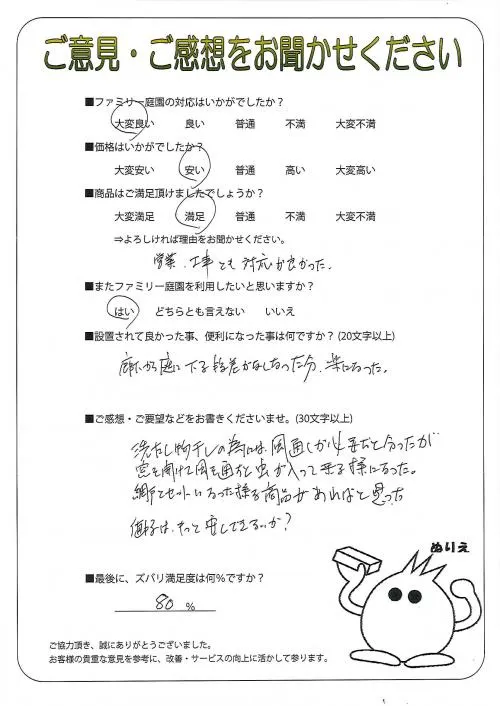 ご意見・ご感想をお聞かせください
■ファミリー庭園の対応はいかがでしたか？
大変良い 良い 普通 不満 大変不満
■価格はいかがでしたか？
大変安い 安い 普通 高い 大変高い
■商品はご満足頂けましたでしょうか？
大変満足 満足 普通 不満 大変不満
⇒よろしければ理由をお聞かせください。
営業、工事とも対応が良かった。
■またファミリー庭園を利用したいと思いますか？
はい どちらとも言えない いいえ
■設置されて良かった事、便利になった事は何ですか？(20文字以上)
廊下から庭に下る段差がなくなった分、楽になった。
■ご感想・ご要望などをお書きくださいませ。(30文字以上)
洗たく物干しの為には、風通しが必要だと分ったが
窓を開けて風を通すと虫が入って来る様になった。
網戸とセットになった様な商品があればなと思った
価格は、もっと安くできるのか？
ぬりえ
■最後に、ズバリ満足度は何%ですか？
80 %
ご協力頂き、誠にありがとうございました。
お客様の貴重な意見を参考に、改善・サービスの向上に活かして参ります。